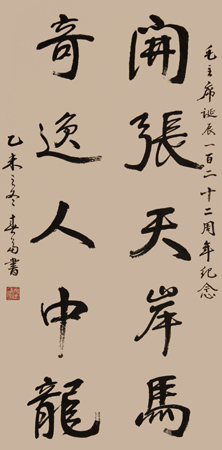 毛主席誕辰一百二十二周年紀念
開張天岸馬
奇逸人中龍
乙未之冬春書